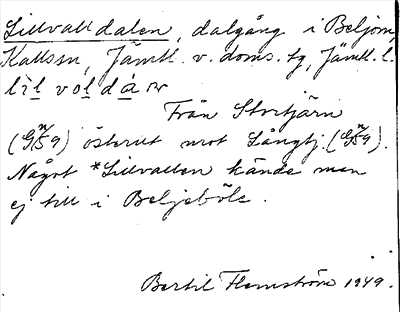 Lillvalldalen, dalgång i Beljom,
Kallssn, Jämtl. v. doms. tg, Jämtl. l.
Från Stortjärn
österut mot Långtj.
Något *Lillvallen kände man
ej till i Beljeböle.
Bertil Flemström 1949.